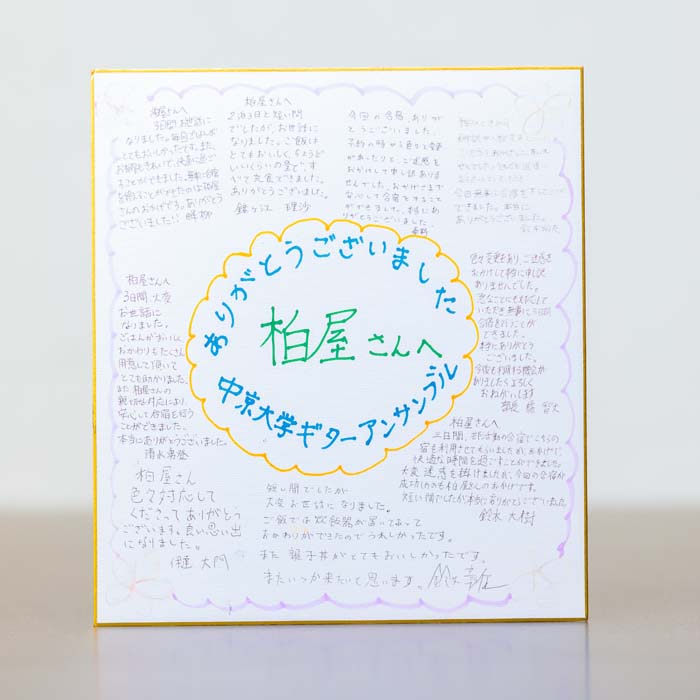 柏屋さんへ
3日間お世話に
なりました。毎日ごはんが
とてもおいしかったです。また、
ることができました。無事に合宿
を終えることができたのは柏屋
さんのおかげです。ありがとう
ございました!!
柏屋さんへ
2泊3日と短い間
でしたが、お世話に
なりました。ご飯は
とてもおいしく、ちょうど
いいくらいの量で、す
べて完食できました。
ありがとうございました。
今回の合宿、ありが
とうございました。
予約の時から色々と変更
があったりと、ご迷惑を
おかけして申し訳ありま
せんでした。おかげさまで
安心して合宿をすること
ができました。本当にあ
りがとうございました。
今回無事に合宿をすることが
できました。本当に
ありがとうございました。
ありがとうございました
柏屋さんへ
中京大学ギターアンサンブル
色々変更もあり、ご迷惑を
おかけして本当に申し訳
ありませんでした。
急なことにも対応して
いただき無事に3日間
合宿を行うことが
できました。
本当にありがとう
ございました。
今後も利用する機会が
ありましたらよろしく
おねがいします
柏屋さんへ
3日間、大変
お世話に
なりました。
ごはんがおいしく
おかわりもたくさん
用意して頂いて
とても助かりました。
また柏屋さんの
親切な対応により、
安心して合宿を行う
ことができました。
本当にありがとうございました。
柏屋さんへ
三日間、
宿を利用させてもらいましたが、おかげで、
快適な時間を過ごすことができました。
大変迷惑を掛けましたが、今回の合宿が
成功したのも柏屋さんのおかげです。
短い間でしたが本当にありがとうございました。
鈴木 大樹
柏屋さん
色々対応して
くださってありがとう
ございます。良い思い出
になりました。
伊達 大門
短い間でしたが
大変お世話になりました。
ご飯では炊飯器が置いてあって
おかわりができたのでうれしかったです。
また親子丼がとてもおいしかったです。
またいつか来たいと思います。